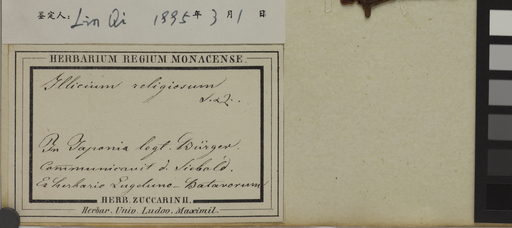 鉴定人: Lin Qi 1995年 3月1日
HERBARIUM REGIUM MONACENSE.
Illicium religiosum
S. & Z.
In Japonia legt. Bürger.
Communicavit d. Siebold.
Ex herbario Lugduno-Batavorum
HERB. ZUCCARINII.
Herbar. Univ. Ludov. Maximil.